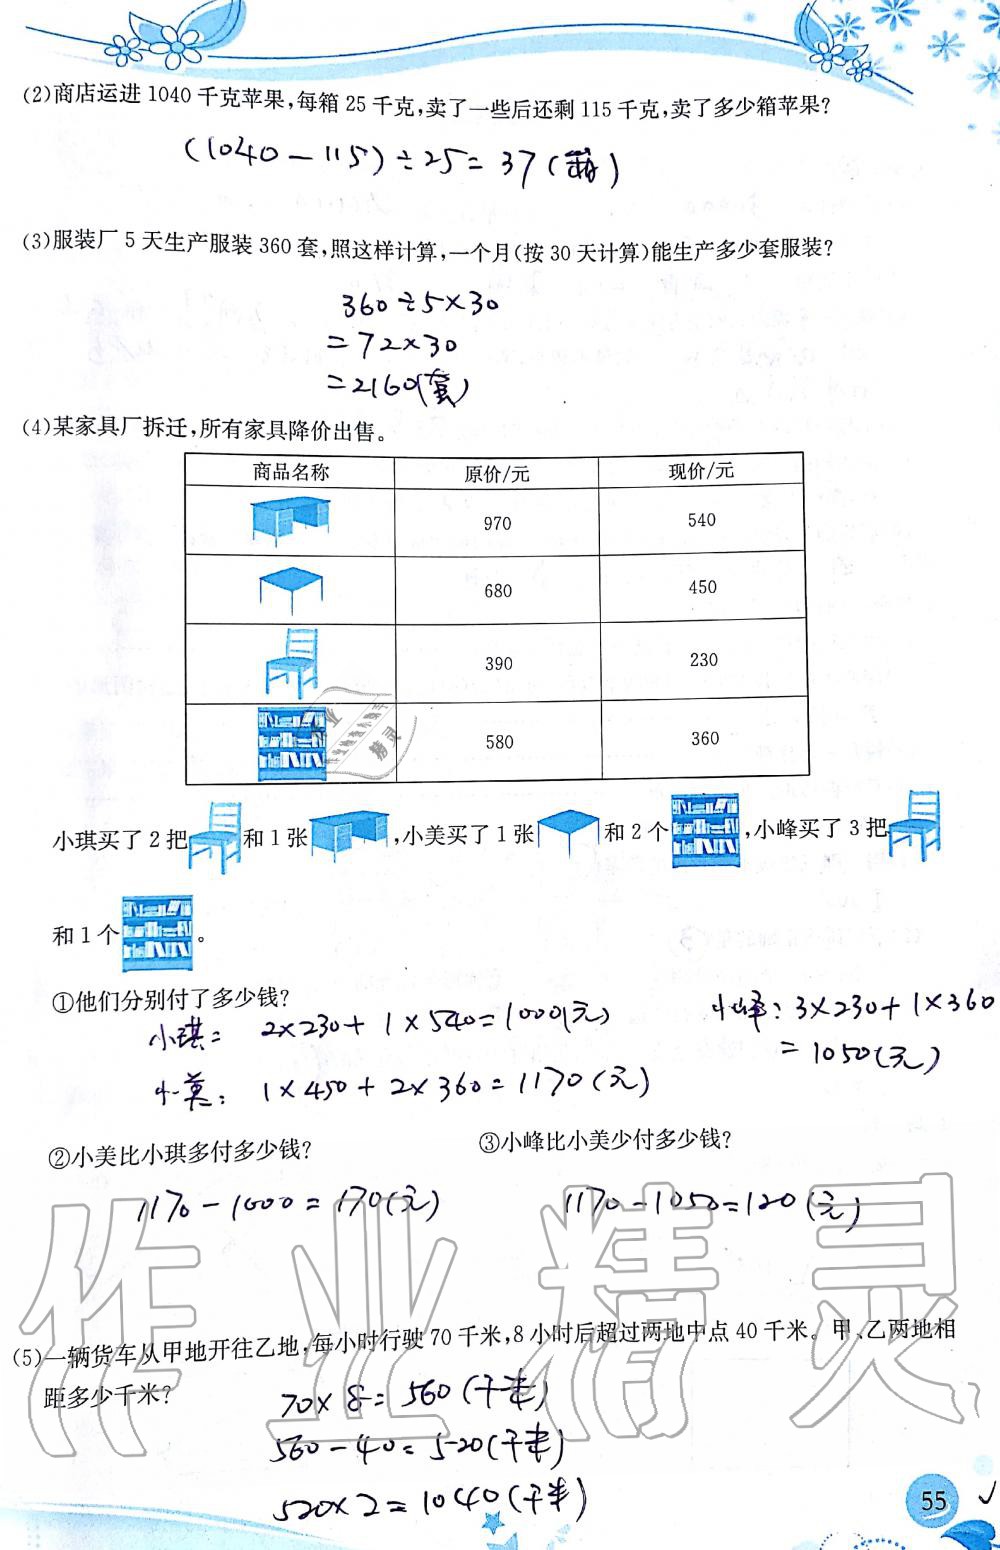 (2)商店运进 1040 千克苹果,每箱 25 千克,卖了一些后还剩 115 千克,卖了多少箱苹果?
(1040-115)÷25=37(箱)
(3)服装厂 5 天生产服装 360 套,照这样计算,一个月(按 30 天计算)能生产多少套服装?
360÷5×30
=72×30
=2160(套)
(4)某家具厂拆迁,所有家具降价出售。
商品名称 原价/元 现价/元
970 540
680 450
390 230
580 360
小琪买了 2 把 和 1 张 ,小美买了 1 张 和 2 个 ,小峰买了 3 把
和 1 个 。
①他们分别付了多少钱?
小琪: 2×230+1×540=1000(元) 小峰:3×230+1×360
=1050(元)
小美: 1×450+2×360=1170(元)
②小美比小琪多付多少钱? ③小峰比小美少付多少钱?
1170-1000=170(元) 1170-1050=120(元)
作业精灵
(5)一辆货车从甲地开往乙地,每小时行驶 70 千米,8 小时后超过两地中点 40 千米。甲、乙两地相
距多少千米?
70×8=560(千米)
560-40=520(千米)
520×2=1040(千米)
55